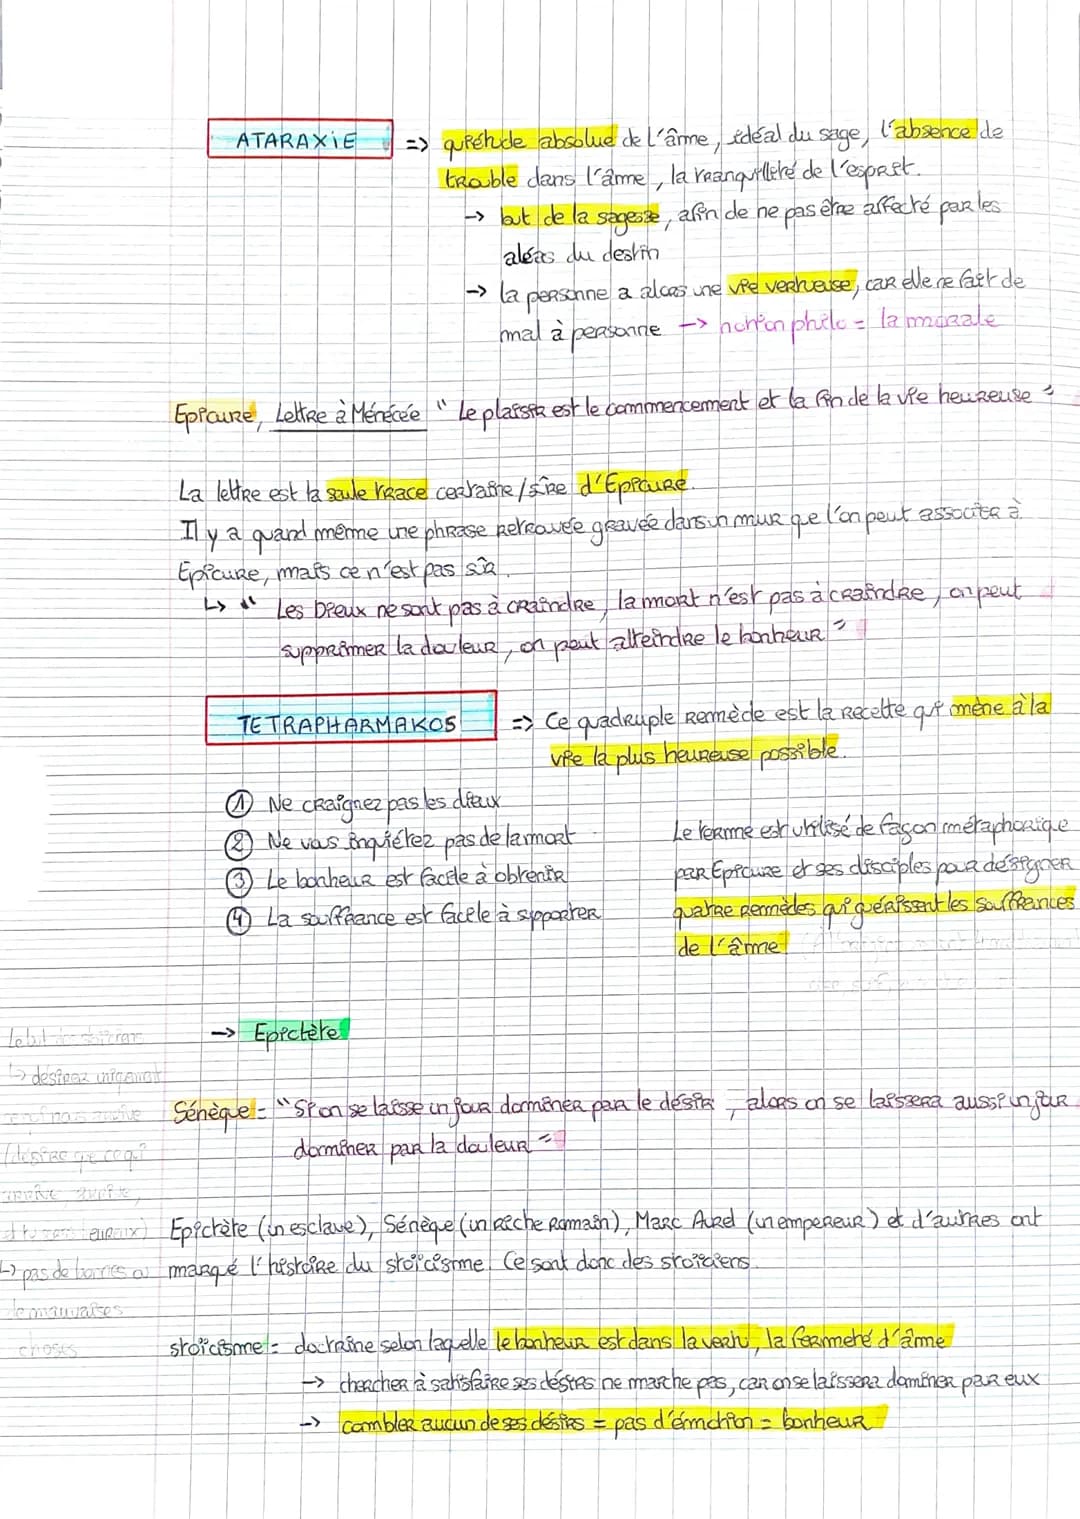 ATARAXIE => quiétude absolue de l'âme, idéal du sage, l'absence de
trouble dans l'âme, la tranquillité de l'esprit.
-> but de la sagesse, afin de ne pas être affecté par les
aléas du destin
-> la personne a alors une vie vertueuse, car elle ne fait de
mal à personne -> notion philo = la morale
Epicure, Lettre à Ménécée " Le plaisir est le commencement et la fin de la vie heureuse "
La lettre est la seule trace certaine/sûre d'Epicure.
Il y a quand même une phrase retrouvée gravée dans un mur que l'on peut associer à
Epicure, mais ce n'est pas sûr.
↳ " Les Dieux ne sont pas à craindre, la mort n'est pas à craindre, on peut
supprimer la douleur, on peut atteindre le bonheur "
TETRAPHARMAKOS => Ce quadruple remède est la recette qui mène à la
vie la plus heureuse possible.
① Ne craignez pas les dieux
② Ne vous inquiétez pas de la mort
③ Le bonheur est facile à obtenir
④ La souffrance est facile à supporter
Le terme est utilisé de façon métaphorique
par Epicure et ses disciples pour désigner
quatre remèdes qui guérissent les souffrances
de l'âme
-> Epictète
Sénèque = "Si on se laisse un jour dominer par le désir, alors on se laissera aussi un jour
dominer par la douleur "
Le but des stoïciens
↳ désirer uniquement
ce qui nous arrive
(désire que ce qui
arrive arrive,
et tu seras heureux)
↳ pas de bonnes ou
de mauvaises
choses
Epictète (un esclave), Sénèque (un riche Romain), Marc Aurel (un empereur) et d'autres ont
marqué l'histoire du stoïcisme. Ce sont donc des stoïciens.
stoïcisme = doctrine selon laquelle le bonheur est dans la vertu, la fermeté d'âme
-> chercher à satisfaire ses désirs ne marche pas, car on se laissera dominer par eux
-> combler aucun de ses désirs = pas d'émotion = bonheur